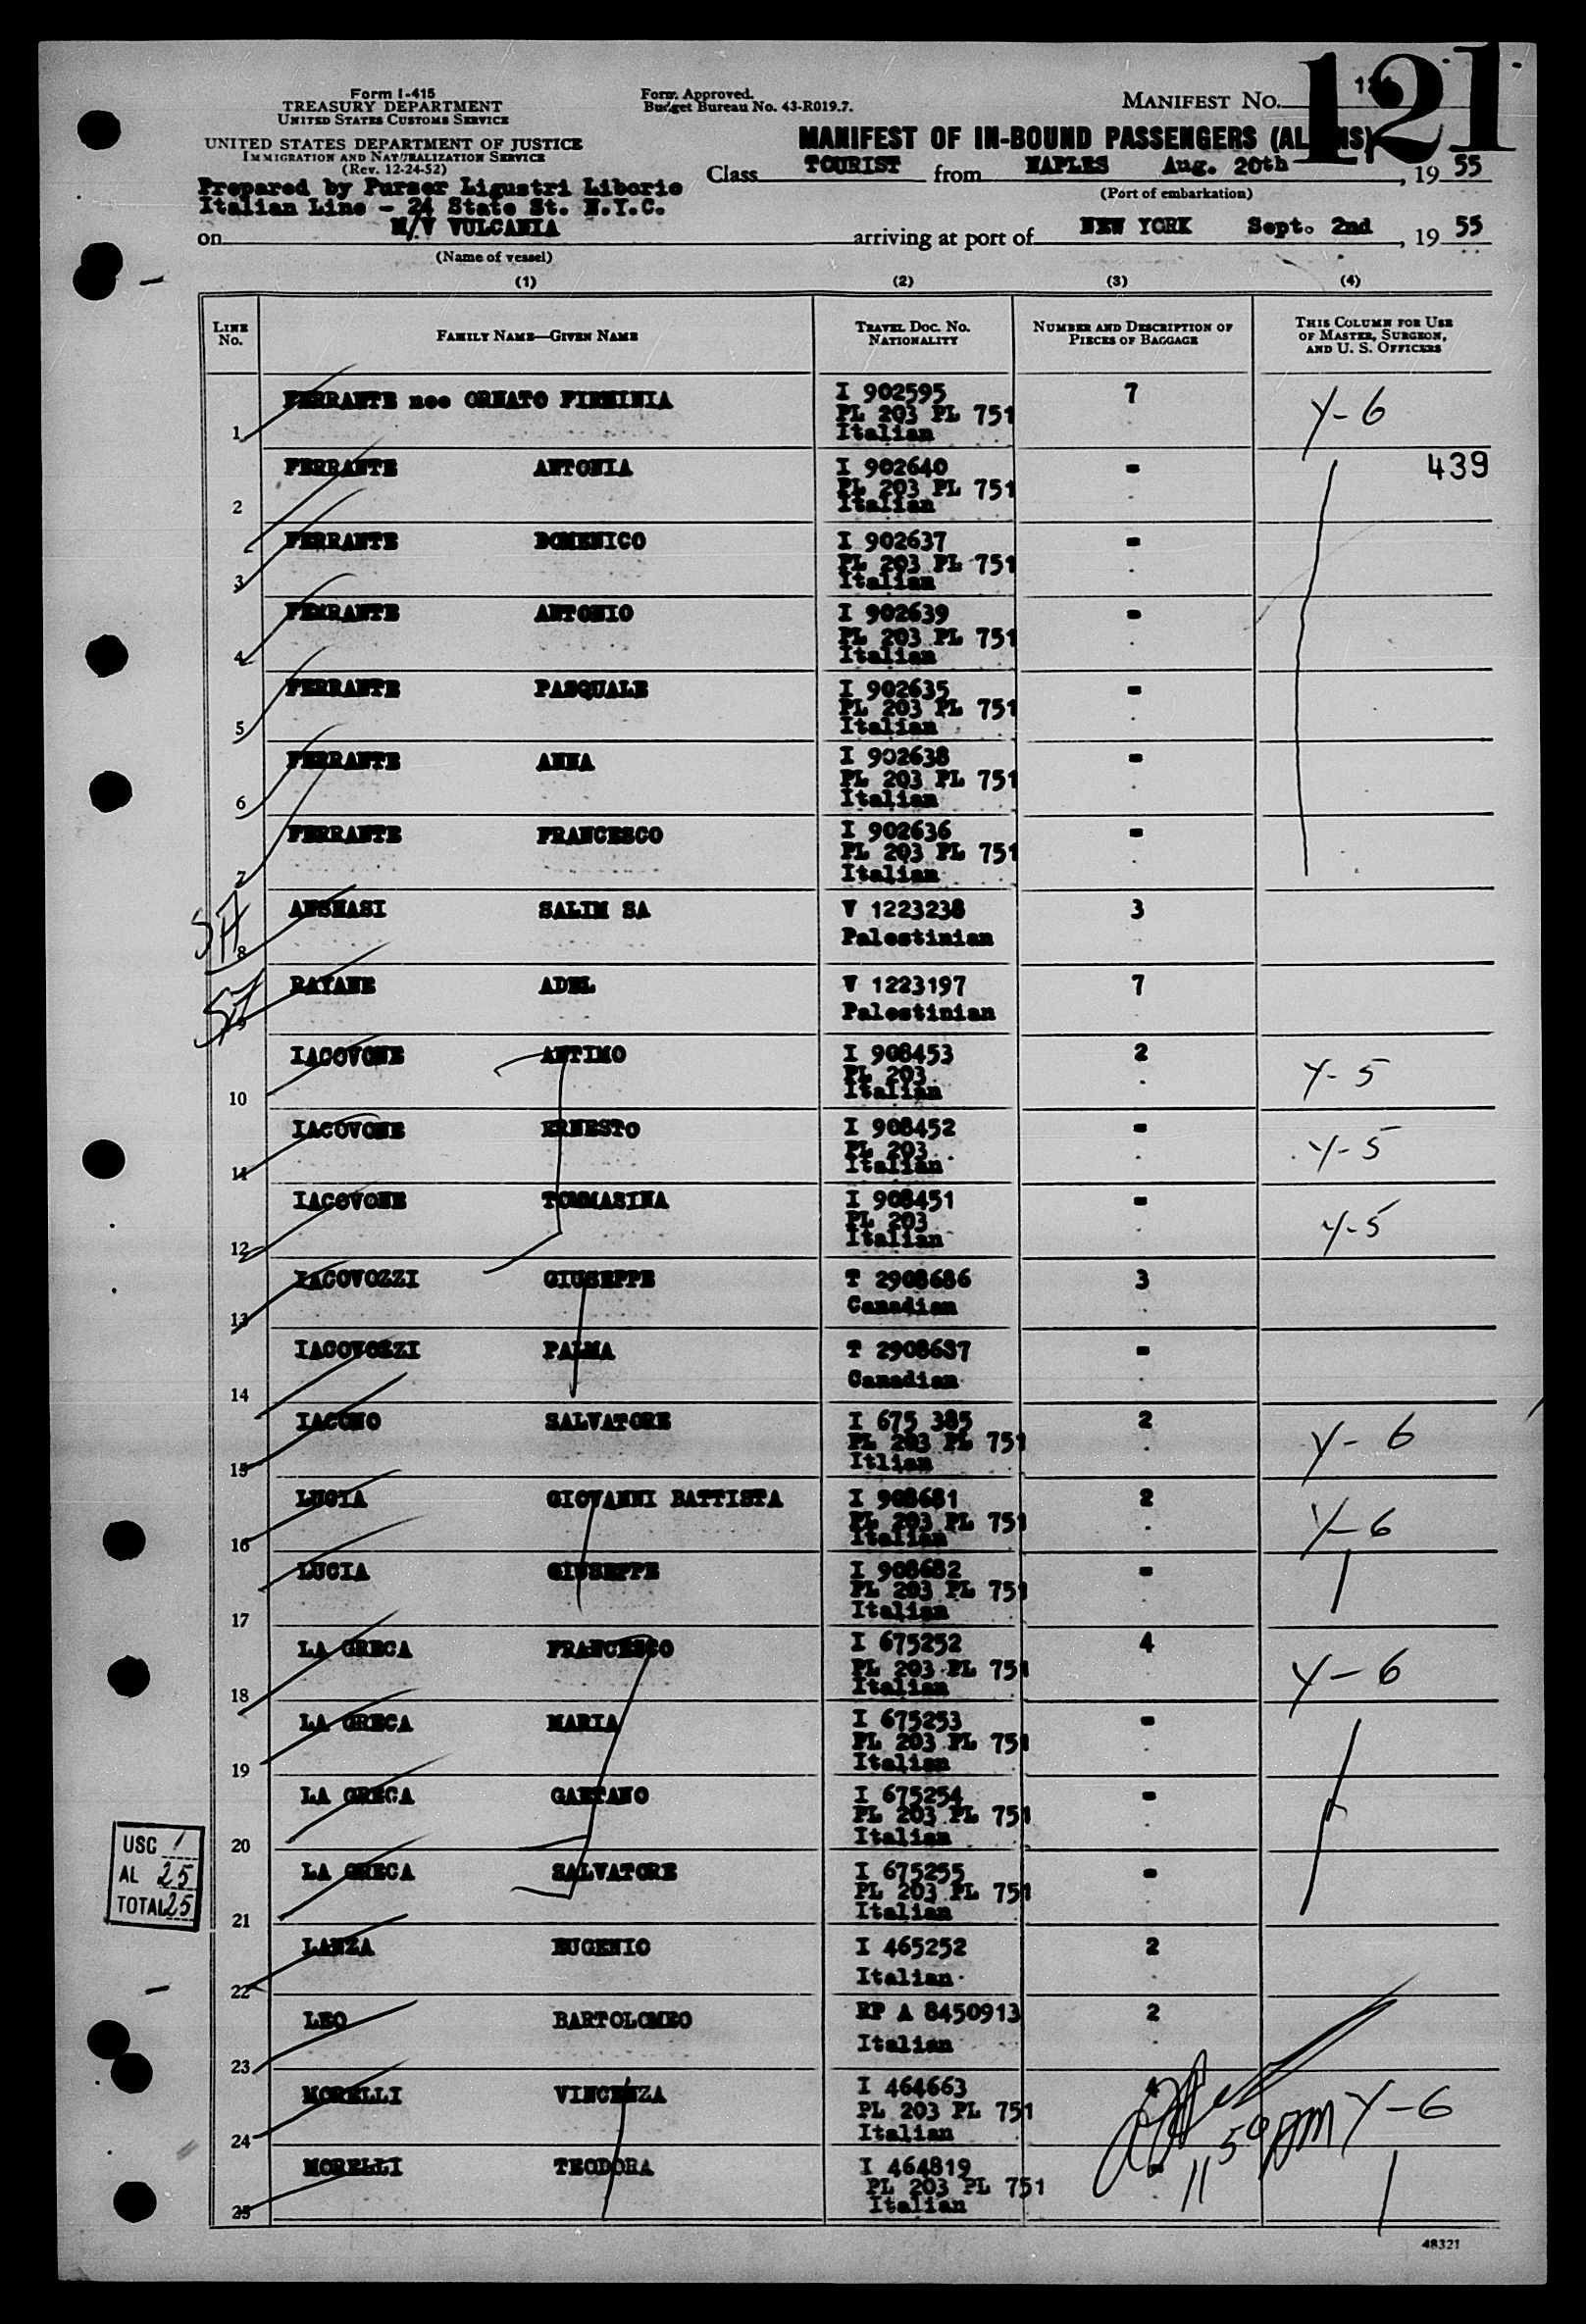 121
Form I-415
TREASURY DEPARTMENT
UNITED STATES CUSTOMS SERVICE
Form Approved.
Budget Bureau No. 43-R019.7.
MANIFEST No.
UNITED STATES DEPARTMENT OF JUSTICE
IMMIGRATION AND NATURALIZATION SERVICE
(Rev. 12-24-52)
MANIFEST OF IN-BOUND PASSENGERS (ALIENS)
Class TOURIST from NAPLES Aug. 20th, 19 55
(Port of embarkation)
Prepared by Purser Ligustri Liborio
Italian Line - 24 State St. N.Y.C.
on M/V VULCANIA arriving at port of NEW YORK Sept. 2nd, 19 55
(Name of vessel)
(1) (2) (3) (4)
LINE No. FAMILY NAME—GIVEN NAME TRAVEL DOC. NO. NATIONALITY NUMBER AND DESCRIPTION OF PIECES OF BAGGAGE THIS COLUMN FOR USE OF MASTER, SURGEON, AND U. S. OFFICERS
1 FERRANTE nee ORNATO FIRMINIA I 902595 7 Y-6
PL 203 PL 751
Italian
2 FERRANTE ANTONIA I 902640 - 439
PL 203 PL 751
Italian
3 FERRANTE DOMENICO I 902637 -
PL 203 PL 751
Italian
4 FERRANTE ANTONIO I 902639 -
PL 203 PL 751
Italian
5 FERRANTE PASQUALE I 902635 -
PL 203 PL 751
Italian
6 FERRANTE ANNA I 902638 -
PL 203 PL 751
Italian
7 FERRANTE FRANCESCO I 902636 -
PL 203 PL 751
Italian
8 ANSHASI SALIM SA V 1223238 3
Palestinian
9 RAYANE ADEL V 1223197 7
Palestinian
10 IACOVONE ANTIMO I 908453 2 Y-5
PL 203
Italian
11 IACOVONE ERNESTO I 908452 - Y-5
PL 203
Italian
12 IACOVONE TOMMASINA I 908451 - Y-5
PL 203
Italian
13 IACOVOZZI GIUSEPPE T 2908686 3
Canadian
14 IACOVOZZI PALMA T 2908687 -
Canadian
15 IACONO SALVATORE I 675 385 2 Y-6
PL 203 PL 751
Itlian
16 LUCIA GIOVANNI BATTISTA I 908681 2 Y-6
PL 203 PL 751
Italian
17 LUCIA GIUSEPPE I 908682 -
PL 203 PL 751
Italian
18 LA GRECA FRANCESCO I 675252 4 Y-6
PL 203 PL 751
Italian
19 LA GRECA MARIA I 675253 -
PL 203 PL 751
Italian
20 LA GRECA GAETANO I 675254 -
PL 203 PL 751
Italian
21 LA GRECA SALVATORE I 675255 -
PL 203 PL 751
Italian
USC /
AL 25
TOTAL 25
22 LANZA EUGENIO I 465252 2
Italian
23 LEO BARTOLOMEO RP A 8450913 2
Italian
24 MORELLI VINCENZA I 464663 4 Y-6
PL 203 PL 751
Italian
11 59 pm
25 MORELLI TEODORA I 464819 -
PL 203 PL 751
Italian
48321